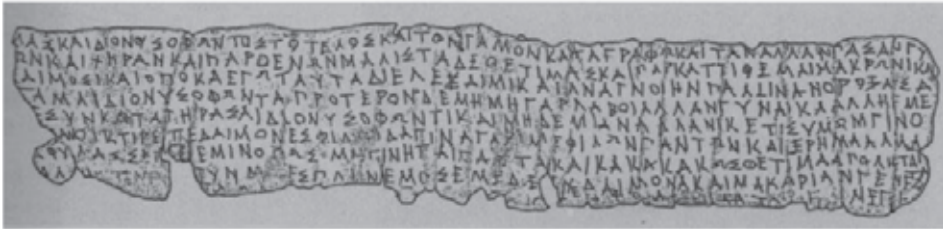 ΜΑΣΚΑΙΔΙΟΝΥΣΟΦΩΝΤΟΣΤΟΤΕΛΟΣΚΑΙΤΟΝΓΑΜΟΝΚΑΤΑΓΡΑΦΩΚΑΙΤΑΝΑΛΛΑΝΠΑΣΑΝΓΥ
ΩΝΚΑΙΧΗΡΑΝΚΑΙΠΑΡΘΕΝΩΝΜΑΛΙΣΤΑΔΕΘΕΤΙΜΑΣΚΑΙΠΑΡΚΑΤΤΙΘΕΜΑΙΜΑΚΡΩΝΙΚΑΙ
ΔΑΙΜΟΣΙΚΑΙΟΠΟΚΑΕΓΩΤΑΥΤΑΔΙΕΛΕΞΑΙΜΙΚΑΙΑΝΑΓΝΟΙΗΝΠΑΛΙΝΑΝΟΡΟΞΑΣΑ
ΓΑΜΑΙΔΙΟΝΥΣΟΦΩΝΤΑΠΡΟΤΕΡΟΝΔΕΜΗΜΗΓΑΡΛΑΒΟΙΑΛΛΑΝΓΥΝΑΙΚΑΑΛΛΗΕΜΕ
ΕΣΥΝΚΑΤΑΓΗΡΑΣΑΙΔΙΟΝΥΣΟΦΩΝΤΙΚΑΙΜΗΔΕΜΙΑΝΑΛΛΑΝΙΚΕΤΙΣΥΜΩΜΓΙΝΟ
ΑΝΟΙΚΤΙΡΕΤΕΔΑΙΜΟΝΕΣΦΙΛΟΙΔΑΠΙΝΑΓΑΡΙΜΕΦΙΛΩΝΠΑΝΤΩΝΚΑΙΕΡΗΜΑΑΛΛΑ
ΑΦΥΛΑΣΣΕΤΕΕΜΙΝΟΠΩΣΜΗΓΙΝΗΤΑΙΤΑΥΤΑΚΑΙΚΑΚΑΚΑΚΩΣΘΕΤΙΜΑΑΠΟΛΗΤΑΙ
ΥΝΜ ΕΣΠΛΗΝΕΜΟΣΕΜΕΔΕ ΔΑΙΜΟΝΑΚΑΙΜΑΚΑΡΙΑΝΓΕΝΕΣ